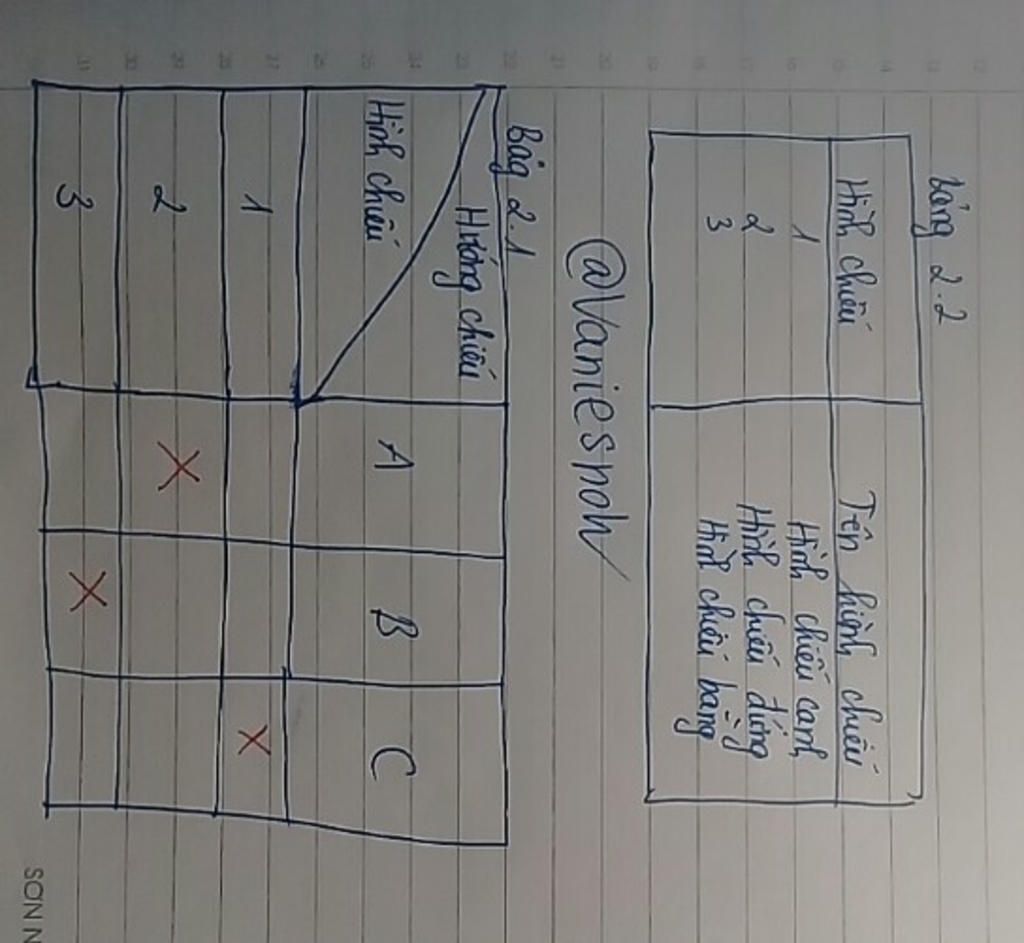 bảng 2.2
Hình chiếu Tên hình chiếu
1 Hình chiếu cạnh
2 Hình chiếu đứng
3 Hình chiếu bằng
@Vaniesnoh
Bảg 2.1
Hướng chiếu
Hình chiếu A B C
1 X
2 X
3 X
SƠN N